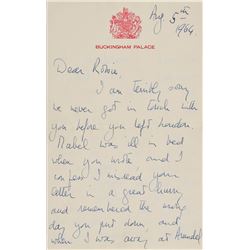 Aug 5th
1964
BUCKINGHAM PALACE
Dear Robin,
I am terribly sorry
we never got in touch with
you before you left London.
Mabel was ill in bed
when you wrote, and I
confess I misread your
letter in a great hurry
and remembered the wrong
day you put down, and
when I was away at Arundel